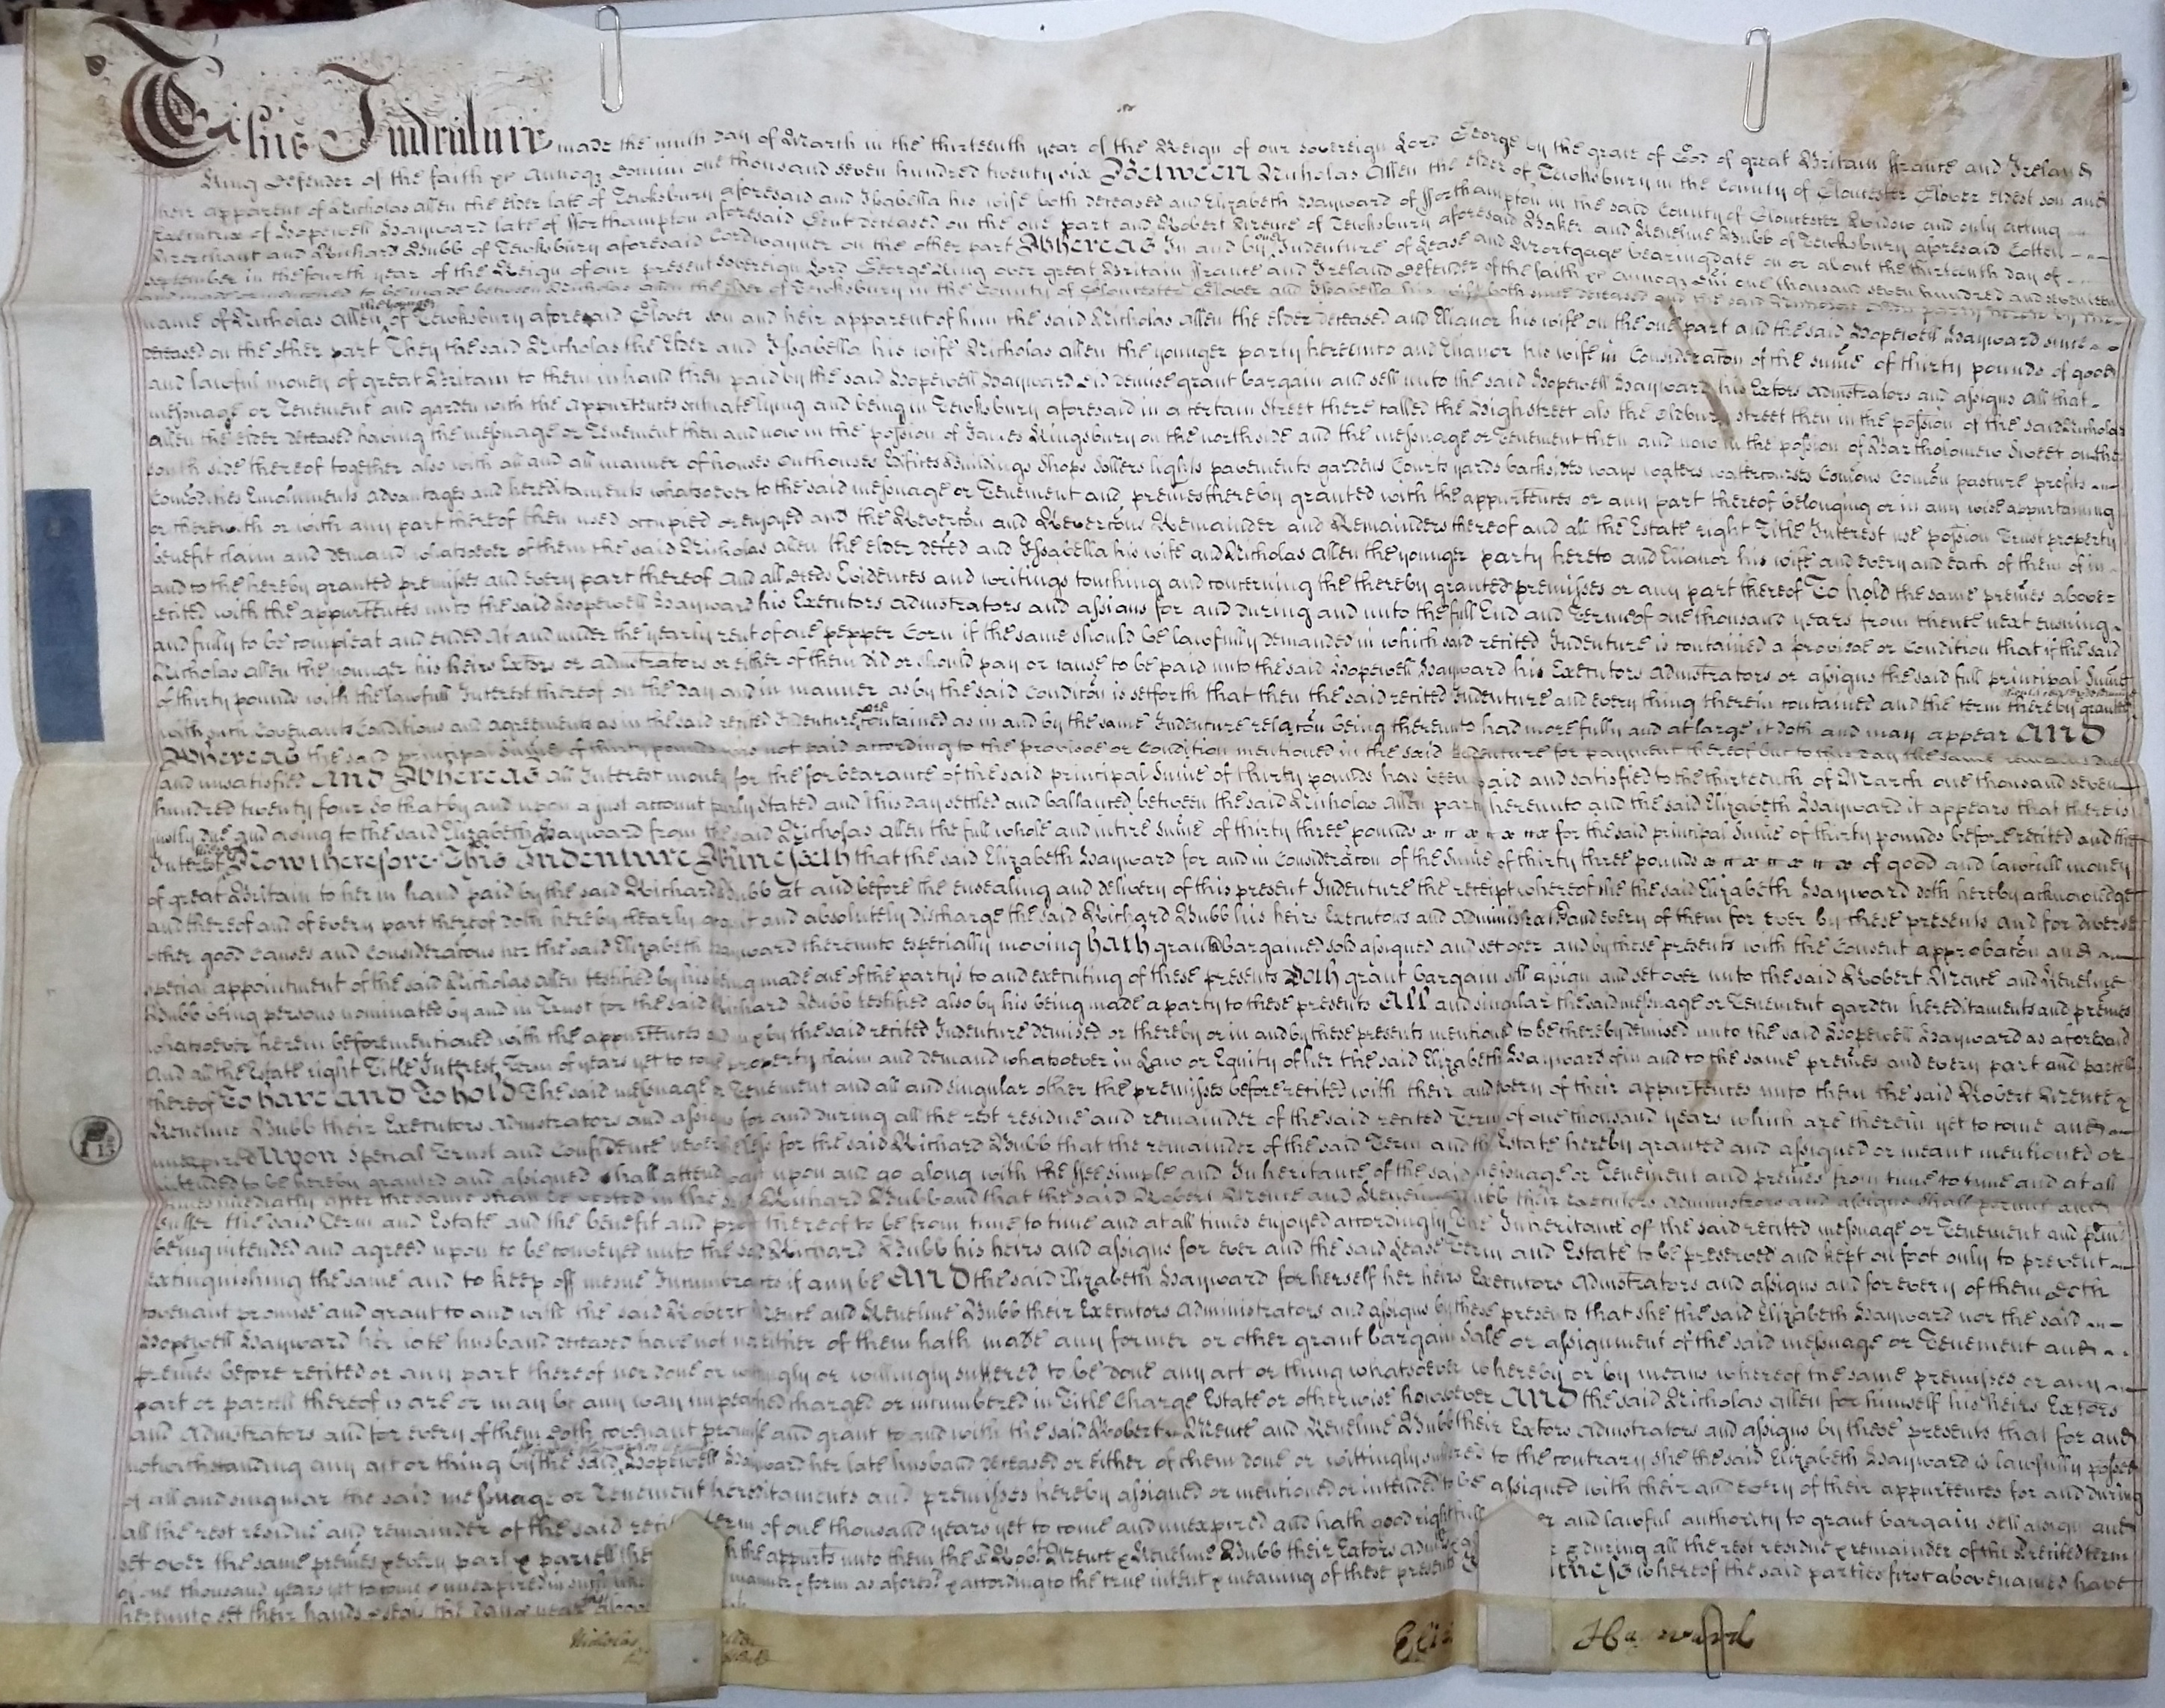 This Indenture made the ninth day of March in the thirteenth year of the Reign of our sovereign Lord George by the grace of God of great Britain ffrance and Ireland
King Defender of the faith &c Annoq Domini one thousand seven hundred twenty six Between Nicholas Allen the elder of Tewksbury in the County of Gloucester Glover eldest son and
heir apparent of Nicholas Allen the elder late of Tewksbury aforesaid and Isabella his wife both deceased and Elizabeth Hayward of fforthampton in the said County of Gloucester Widow and only acting
Executrix of Hopewell Hayward late of fforthampton aforesaid Gent deceased on the one part and Robert of Tewksbury aforesaid Baker and Bubb of Tewksbury aforesaid
Merchant and Richard Bubb of Tewksbury aforesaid Cordwayner on the other part Whereas In and by one Indenture of Lease and Mortgage bearing date on or about the thirteenth day of
September in the fourth year of the Reign of our present sovereign Lord George King over great Britain ffrance and Ireland Defender of the faith &c Annoq Dni one thousand seven hundred and seventeen
and made or mentioned to be made between Nicholas Allen the elder of Tewksbury in the County of Gloucester Glover and Isabella his wife both since deceased and the said Nicholas Allen party hereto by the
name of Nicholas Allen the younger of Tewksbury aforesaid Glover son and heir apparent of him the said Nicholas Allen the elder deceased and Elianor his wife on the one part and the said Hopewell Hayward since
deceased on the other part They the said Nicholas the Elder and Issabella his wife Nicholas Allen the younger party hereunto and Elianor his wife in Consideraton of the sume of thirty pounds of good
and lawful money of great Britain to them in hand then paid by the said Hopewell Hayward did demise grant bargain and sell unto the said Hopewell Hayward his Extors Admstrators and assigns All that
messuage or Tenement and garden with the Appurtences scituate lying and being in Tewksbury aforesaid in a certain Street there called the Highstreet als the Oldbury street then in the possion of the said Nicholas
Allen the elder deceased having the messuage or Tenement then and now in the possion of James Kingsbury on the north side and the messuage or Tenement then and now in the possion of Bartholomew Sweet on the
south side thereof together also with all and all manner of houses Outhouses Edifices Buildings Shops Sollers lights pavements gardens Courts yards backsides ways waters watercourses Comons Comon pasture profits
Comodities Emoluments advantages and hereditaments whatsoever to the said messuage or Tenement and premes thereby granted with the appurtences or any part thereof belonging or in any wise appurtaining
or therewith or with any part thereof then used occupied or enjoyed and the Reverton and Revertons Remainder and Remainders thereof and all the Estate right Title Interest use possion Trust property
benefit claim and demand whatsoever of them the said Nicholas Allen the elder deced and Issabella his wife and Nicholas Allen the younger party hereto and Elianor his wife and every and each of them of in
and to the hereby granted premisses and every part thereof And all deeds Evidences and writings touching and concerning the thereby granted premisses or any part thereof To hold the same premes above
recited with the appurtences unto the said Hopewell Hayward his Executors Admstrators and assigns for and during and unto the full End and Terme of one thousand years from thence next ensuing
and fully to be compleat and ended At and under the yearly rent of one pepper Corn if the same should be lawfully demanded in which said recited Indenture is contained a provisoe or Condition that if the said
Nicholas Allen the younger his heirs Extors or Admstrators or either of them did or should pay or cause to be paid unto the said Hopewell Hayward his Executors Admstrators or assigns the said full principal Sume
of thirty pounds with the lawfull Interest thereof on the day and in manner as by the said Conditon is setforth that then the said recited Indenture and every thing therein contained and the term thereby granted
with such Covenants Conditions and agreements as in the said recited Indenture are contained as in and by the same Indenture relaton being thereunto had more fully and at large it doth and may appear And
Whereas the said principal Sume of thirty pounds was not paid according to the provisoe or Condition mentioned in the said Indenture for payment thereof but to this day the same remains due
and unsatisfied And Whereas all Interest money for the forbearance of the said principal Sume of thirty pounds has been paid and satisfied to the thirteenth of March one thousand seven
hundred twenty four So that by and upon a just account fairly stated and this day settled and ballanced between the said Nicholas Allen party hereunto and the said Elizabeth Hayward it appears that there is
justly due and owing to the said Elizabeth Hayward from the said Nicholas Allen the full whole and intire Sume of thirty three pounds for the said principal Sume of thirty pounds before recited and the
Interest thereof Now therefore This Indenture Witnesseth that the said Elizabeth Hayward for and in Consideraton of the Sume of thirty three pounds of good and lawfull money
of great Britain to her in hand paid by the said Richard Bubb at and before the ensealing and delivery of this present Indenture the receipt whereof she the said Elizabeth Hayward doth hereby acknowledge
and thereof and of every part thereof doth hereby clearly acquit and absolutely discharge the said Richard Bubb his heirs Executors and Administrat and every of them for ever by these presents and for diverse
other good causes and Consideratons her the said Elizabeth Hayward thereunto especially moving hath granted bargained sold assigned and set over and by these presents with the Consent approbaton and
special appointment of the said Nicholas Allen testified by his being made one of the partys to and executing of these presents Doth grant bargain sell assign and set over unto the said Robert and
Bubb being persons nominated by and in Trust for the said Richard Bubb testified also by his being made a party to these presents All and singular the said messuage or Tenement garden hereditaments and premes
whatsoever herein beforementioned with the appurtences and in & by the said recited Indenture demised or thereby or in and by these presents mentioned to be thereby demised unto the said Hopewell Hayward as aforesaid
And all the Estate right Title Interest Term of years yet to come property claim and demand whatsoever in Law or Equity of her the said Elizabeth Hayward of in and to the same premes and every part and parcell
thereof To have and To hold The said messuage or Tenement and all and singular other the premisses before recited with their and every of their appurtences unto them the said Robert &
Bubb their Executors Admstrators and assigns for and during all the rest residue and remainder of the said recited Term of one thousand years which are therein yet to come and
unexpired Upon Special Trust and Confidence nevertheless for the said Richard Bubb that the remainder of the said Term and the Estate hereby granted and assigned or meant mentioned or
intended to be hereby granted and assigned shall attend wait upon and go along with the ffee simple and Inheritance of the said messuage or Tenement and premes from time to time and at all
times imediatly after the same shall be vested in the said Richard Bubb and that the said Robert and Bubb their Executors Administrators and assigns shall permit and
suffer the said Term and Estate and the benefit and profit thereof to be from time to time and at all times enjoyed accordingly the Inheritance of the said recited messuage or Tenement and
being intended and agreed upon to be conveyed unto the said Richard Bubb his heirs and assigns for ever and the said Lease Term and Estate to be preserved and kept on foot only to prevent
extinguishing the same and to keep off mesne Incumbrances if any be And the said Elizabeth Hayward for herself her heirs Executors Admstrators and assigns and for every of them doth
covenant promise and grant to and with the said Robert and Bubb their Executors Administrators and assigns by these presents that she the said Elizabeth Hayward nor the said
Hopewell Hayward her late husband deceased have not neither of them hath made any former or other grant bargain Sale or assignment of the said messuage or Tenement and
premes before recited or any part thereof nor done or wittingly or willingly suffered to be done any act or thing whatsoever whereby or by means whereof the same premisses or any
part or parcell thereof is are or may be any way impeached charged or incumbered in Title Charge Estate or otherwise however And the said Nicholas Allen for himself his heirs Extors
and Admstrators and for every of them doth covenant promise and grant to and with the said Robert and Bubb their Extors Admstrators and assigns by these presents that for and
notwithstanding any act or thing by the said Hopewell Hayward her late husband deceased or either of them done or wittingly suffered to the contrary she the said Elizabeth Hayward is lawfully possed
of all and singular the said messuage or Tenement hereditaments and premisses hereby assigned or mentioned or intended to be assigned with their and every of their appurtences for and during
all the rest residue and remainder of the said recited term of one thousand years yet to come and unexpired and hath good rightfull and lawful authority to grant bargain sell assign and
set over the same premes & every part & parcell the the appurts unto them the sd Robt & Bubb their Extors & during all the rest residue & remainder of the recited term
of one thousand years yet to come & unexpired in such manner & form as aforesd & according to the true intent & meaning of these presents whereof the said parties first abovenamed have
hereunto set their hands & seals the day & year first above
Nicholas
Eliz Hayward